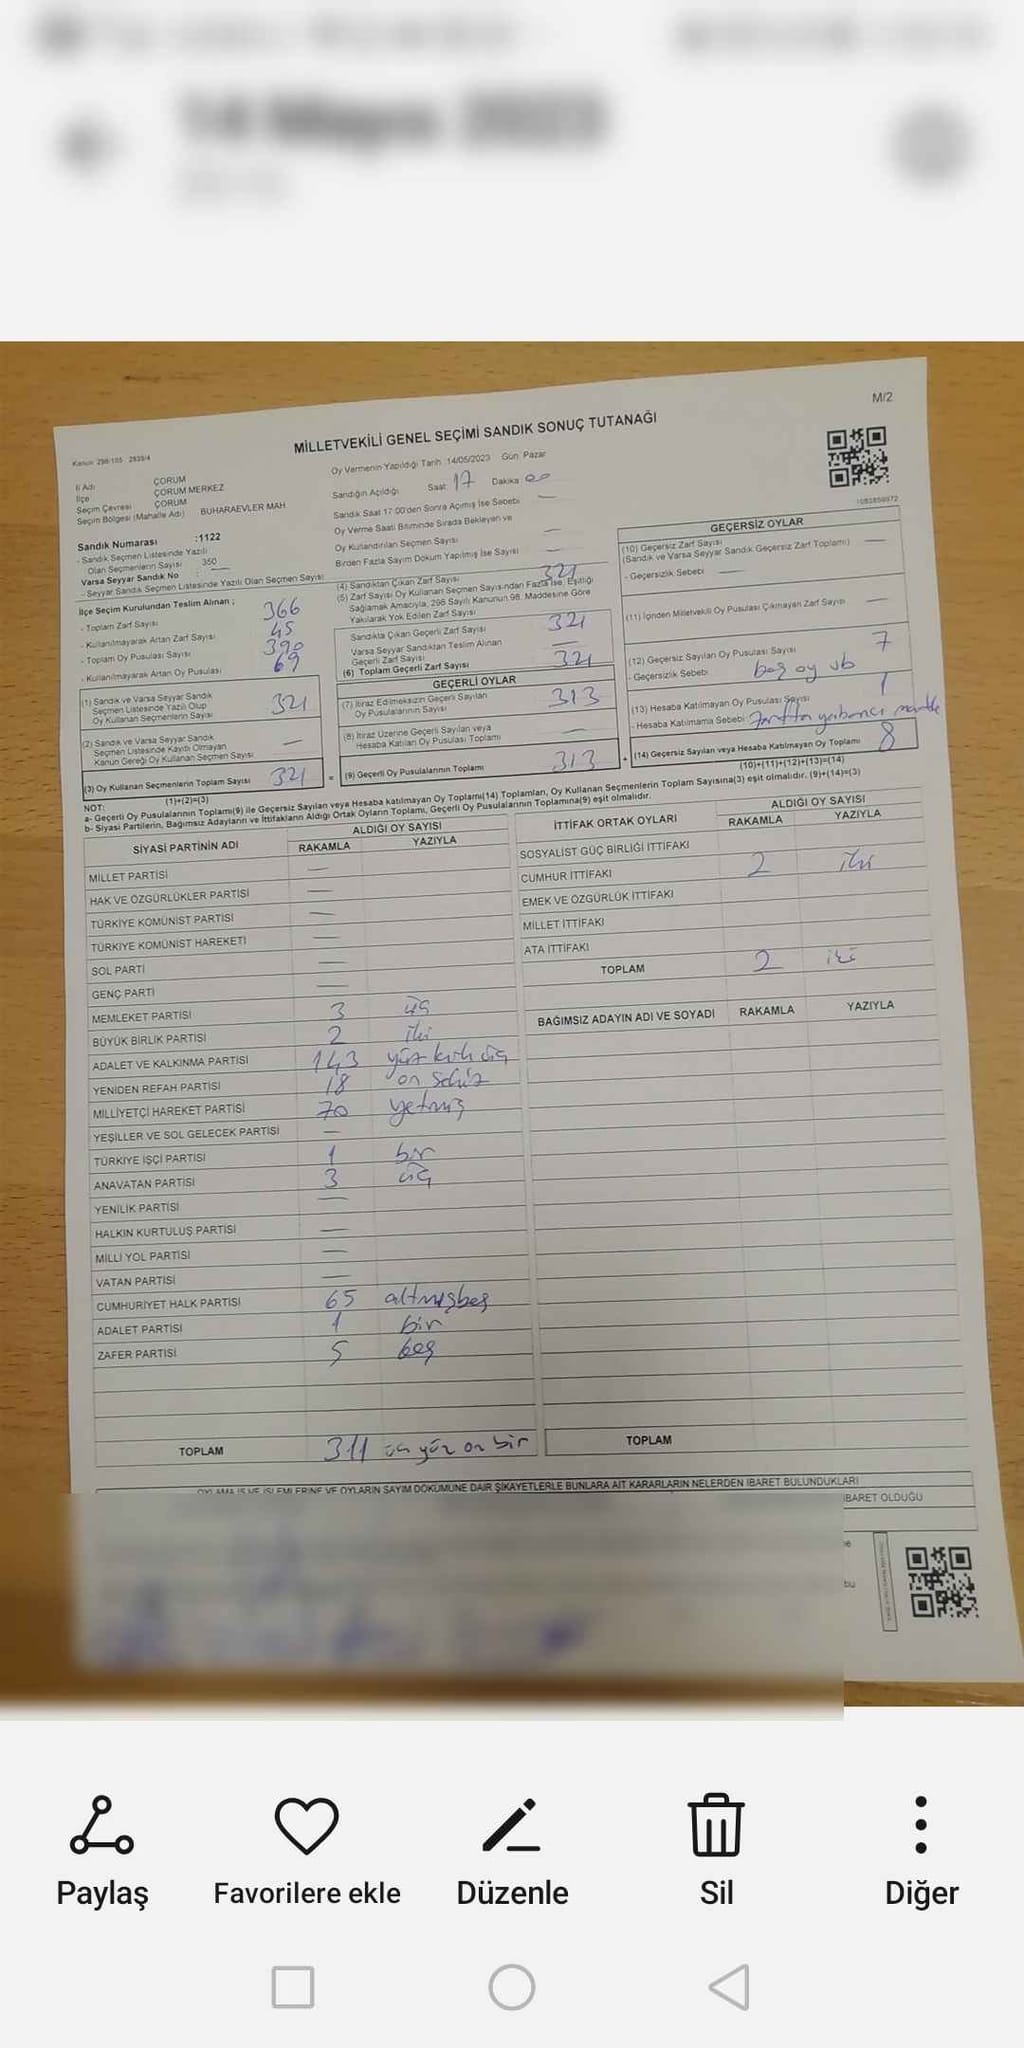 14 Mayıs 2023
M/2
MİLLETVEKİLİ GENEL SEÇİMİ SANDIK SONUÇ TUTANAĞI
Kanun 298/105 2839/4
İl Adı ÇORUM
İlçe ÇORUM MERKEZ
Seçim Çevresi ÇORUM
Seçim Bölgesi (Mahalle Adı) BUHARAEVLER MAH
Sandık Numarası :1122
- Sandık Seçmen Listesinde Yazılı
Olan Seçmenlerin Sayısı 350
Varsa Seyyar Sandık No
- Seyyar Sandık Seçmen Listesinde Yazılı Olan Seçmen Sayısı
Oy Vermenin Yapıldığı Tarih :14/05/2023 Gün Pazar
Sandığın Açıldığı Saat 17 Dakika 00
Sandık Saat 17:00'den Sonra Açılmış İse Sebebi —
Oy Verme Saati Bitiminde Sırada Bekleyen ve
Oy Kullandırılan Seçmen Sayısı —
Birden Fazla Sayım Döküm Yapılmış İse Sayısı —
İlçe Seçim Kurulundan Teslim Alınan ;
- Toplam Zarf Sayısı 366
- Kullanılmayarak Artan Zarf Sayısı 45
- Toplam Oy Pusulası Sayısı 390
- Kullanılmayarak Artan Oy Pusulası 69
(1) Sandık ve Varsa Seyyar Sandık
Seçmen Listesinde Yazılı Olup
Oy Kullanan Seçmenlerin Sayısı 321
(2) Sandık ve Varsa Seyyar Sandık
Seçmen Listesinde Kayıtlı Olmayan
Kanun Gereği Oy Kullanan Seçmen Sayısı —
(3) Oy Kullanan Seçmenlerin Toplam Sayısı 321
(1)+(2)=(3)
(4) Sandıktan Çıkan Zarf Sayısı 321
(5) Zarf Sayısı Oy Kullanan Seçmen Sayısından Fazla İse, Eşitliği
Sağlamak Amacıyla, 298 Sayılı Kanunun 98. Maddesine Göre
Yakılarak Yok Edilen Zarf Sayısı
Sandıkta Çıkan Geçerli Zarf Sayısı 321
Varsa Seyyar Sandıktan Teslim Alınan
Geçerli Zarf Sayısı —
(6) Toplam Geçerli Zarf Sayısı 321
GEÇERLİ OYLAR
(7) İtiraz Edilmeksizin Geçerli Sayılan
Oy Pusulalarının Sayısı 313
(8) İtiraz Üzerine Geçerli Sayılan veya
Hesaba Katılan Oy Pusulası Toplamı —
= (9) Geçerli Oy Pusulalarının Toplamı 313 +
GEÇERSİZ OYLAR
(10) Geçersiz Zarf Sayısı
(Sandık ve Varsa Seyyar Sandık Geçersiz Zarf Toplamı) —
- Geçersizlik Sebebi —
(11) İçinden Milletvekili Oy Pusulası Çıkmayan Zarf Sayısı —
(12) Geçersiz Sayılan Oy Pusulası Sayısı 7
- Geçersizlik Sebebi boş oy vb
(13) Hesaba Katılmayan Oy Pusulası Sayısı 1
- Hesaba Katılmama Sebebi zarfta yabancı madde
(14) Geçersiz Sayılan veya Hesaba Katılmayan Oy Toplamı 8
(10)+(11)+(12)+(13)=(14)
NOT:
a- Geçerli Oy Pusulalarının Toplamı(9) ile Geçersiz Sayılan veya Hesaba katılmayan Oy Toplamı(14) Toplamları, Oy Kullanan Seçmenlerin Toplam Sayısına(3) eşit olmalıdır. (9)+(14)=(3)
b- Siyasi Partilerin, Bağımsız Adayların ve İttifakların Aldığı Ortak Oyların Toplamı, Geçerli Oy Pusulalarının Toplamına(9) eşit olmalıdır.
SİYASİ PARTİNİN ADI ALDIĞI OY SAYISI
RAKAMLA YAZIYLA
MİLLET PARTİSİ —
HAK VE ÖZGÜRLÜKLER PARTİSİ —
TÜRKİYE KOMÜNİST PARTİSİ —
TÜRKİYE KOMÜNİST HAREKETİ —
SOL PARTİ —
GENÇ PARTİ —
MEMLEKET PARTİSİ 3 üç
BÜYÜK BİRLİK PARTİSİ 2 iki
ADALET VE KALKINMA PARTİSİ 143 yüz kırk üç
YENİDEN REFAH PARTİSİ 18 on sekiz
MİLLİYETÇİ HAREKET PARTİSİ 70 yetmiş
YEŞİLLER VE SOL GELECEK PARTİSİ —
TÜRKİYE İŞÇİ PARTİSİ 1 bir
ANAVATAN PARTİSİ 3 üç
YENİLİK PARTİSİ —
HALKIN KURTULUŞ PARTİSİ —
MİLLİ YOL PARTİSİ —
VATAN PARTİSİ —
CUMHURİYET HALK PARTİSİ 65 altmışbeş
ADALET PARTİSİ 1 bir
ZAFER PARTİSİ 5 beş
TOPLAM 311 üç yüz on bir
İTTİFAK ORTAK OYLARI ALDIĞI OY SAYISI
RAKAMLA YAZIYLA
SOSYALİST GÜÇ BİRLİĞİ İTTİFAKI
CUMHUR İTTİFAKI 2 iki
EMEK VE ÖZGÜRLÜK İTTİFAKI
MİLLET İTTİFAKI
ATA İTTİFAKI
TOPLAM 2 iki
BAĞIMSIZ ADAYIN ADI VE SOYADI RAKAMLA YAZIYLA
TOPLAM
OYLAMA İŞ VE İŞLEMLERİNE VE OYLARIN SAYIM DÖKÜMÜNE DAİR ŞİKAYETLERLE BUNLARA AİT KARARLARIN NELERDEN İBARET BULUNDUKLARI
İBARET OLDUĞU
Paylaş
Favorilere ekle
Düzenle
Sil
Diğer